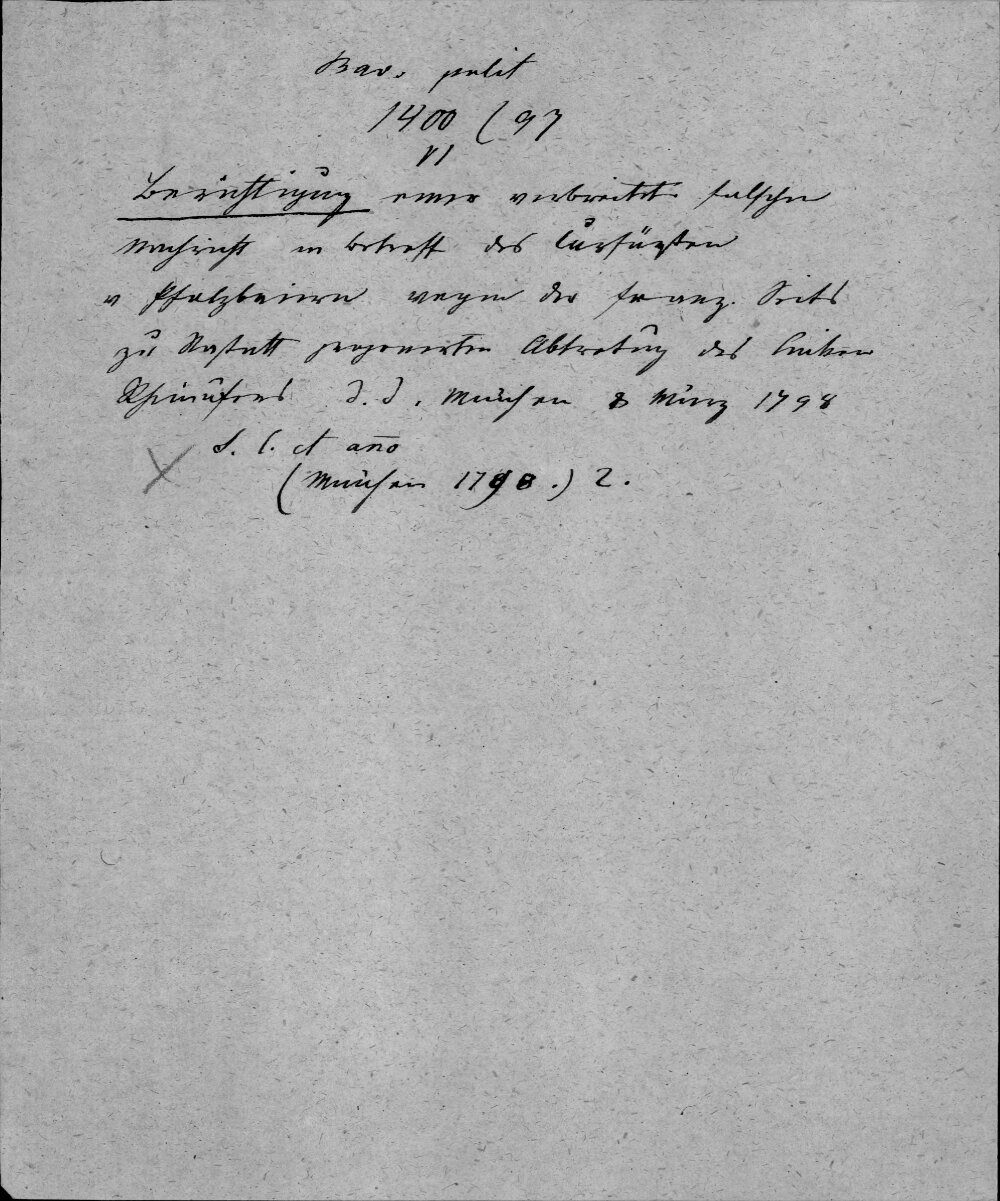 Bav. polit
1400 (97
VI
Berichtigung einer verbreitet falschen
Nachricht in betreff des Curfürsten
v Pfalzbaiern wegen der franz. Seits
zu Rastatt proponirten Abtretung des linken
Rheinufers d. d. München 8 März 1798
S. l. et año
(München 1798.) 2.